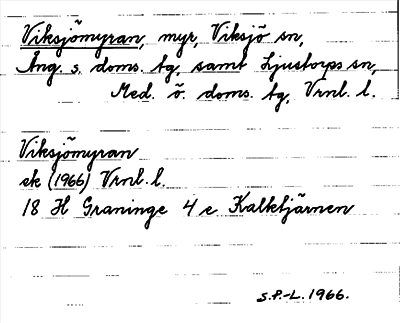 Viksjömyran, myr, Viksjö sn,
Ång. s. doms. tg, samt Ljustorps sn,
Med. ö. doms. tg, Vrnl. l.
Viksjömyran
ek (1966) Vrnl. l.
18 H Graninge 4 e Kalktjärnen
S.P.-L. 1966.